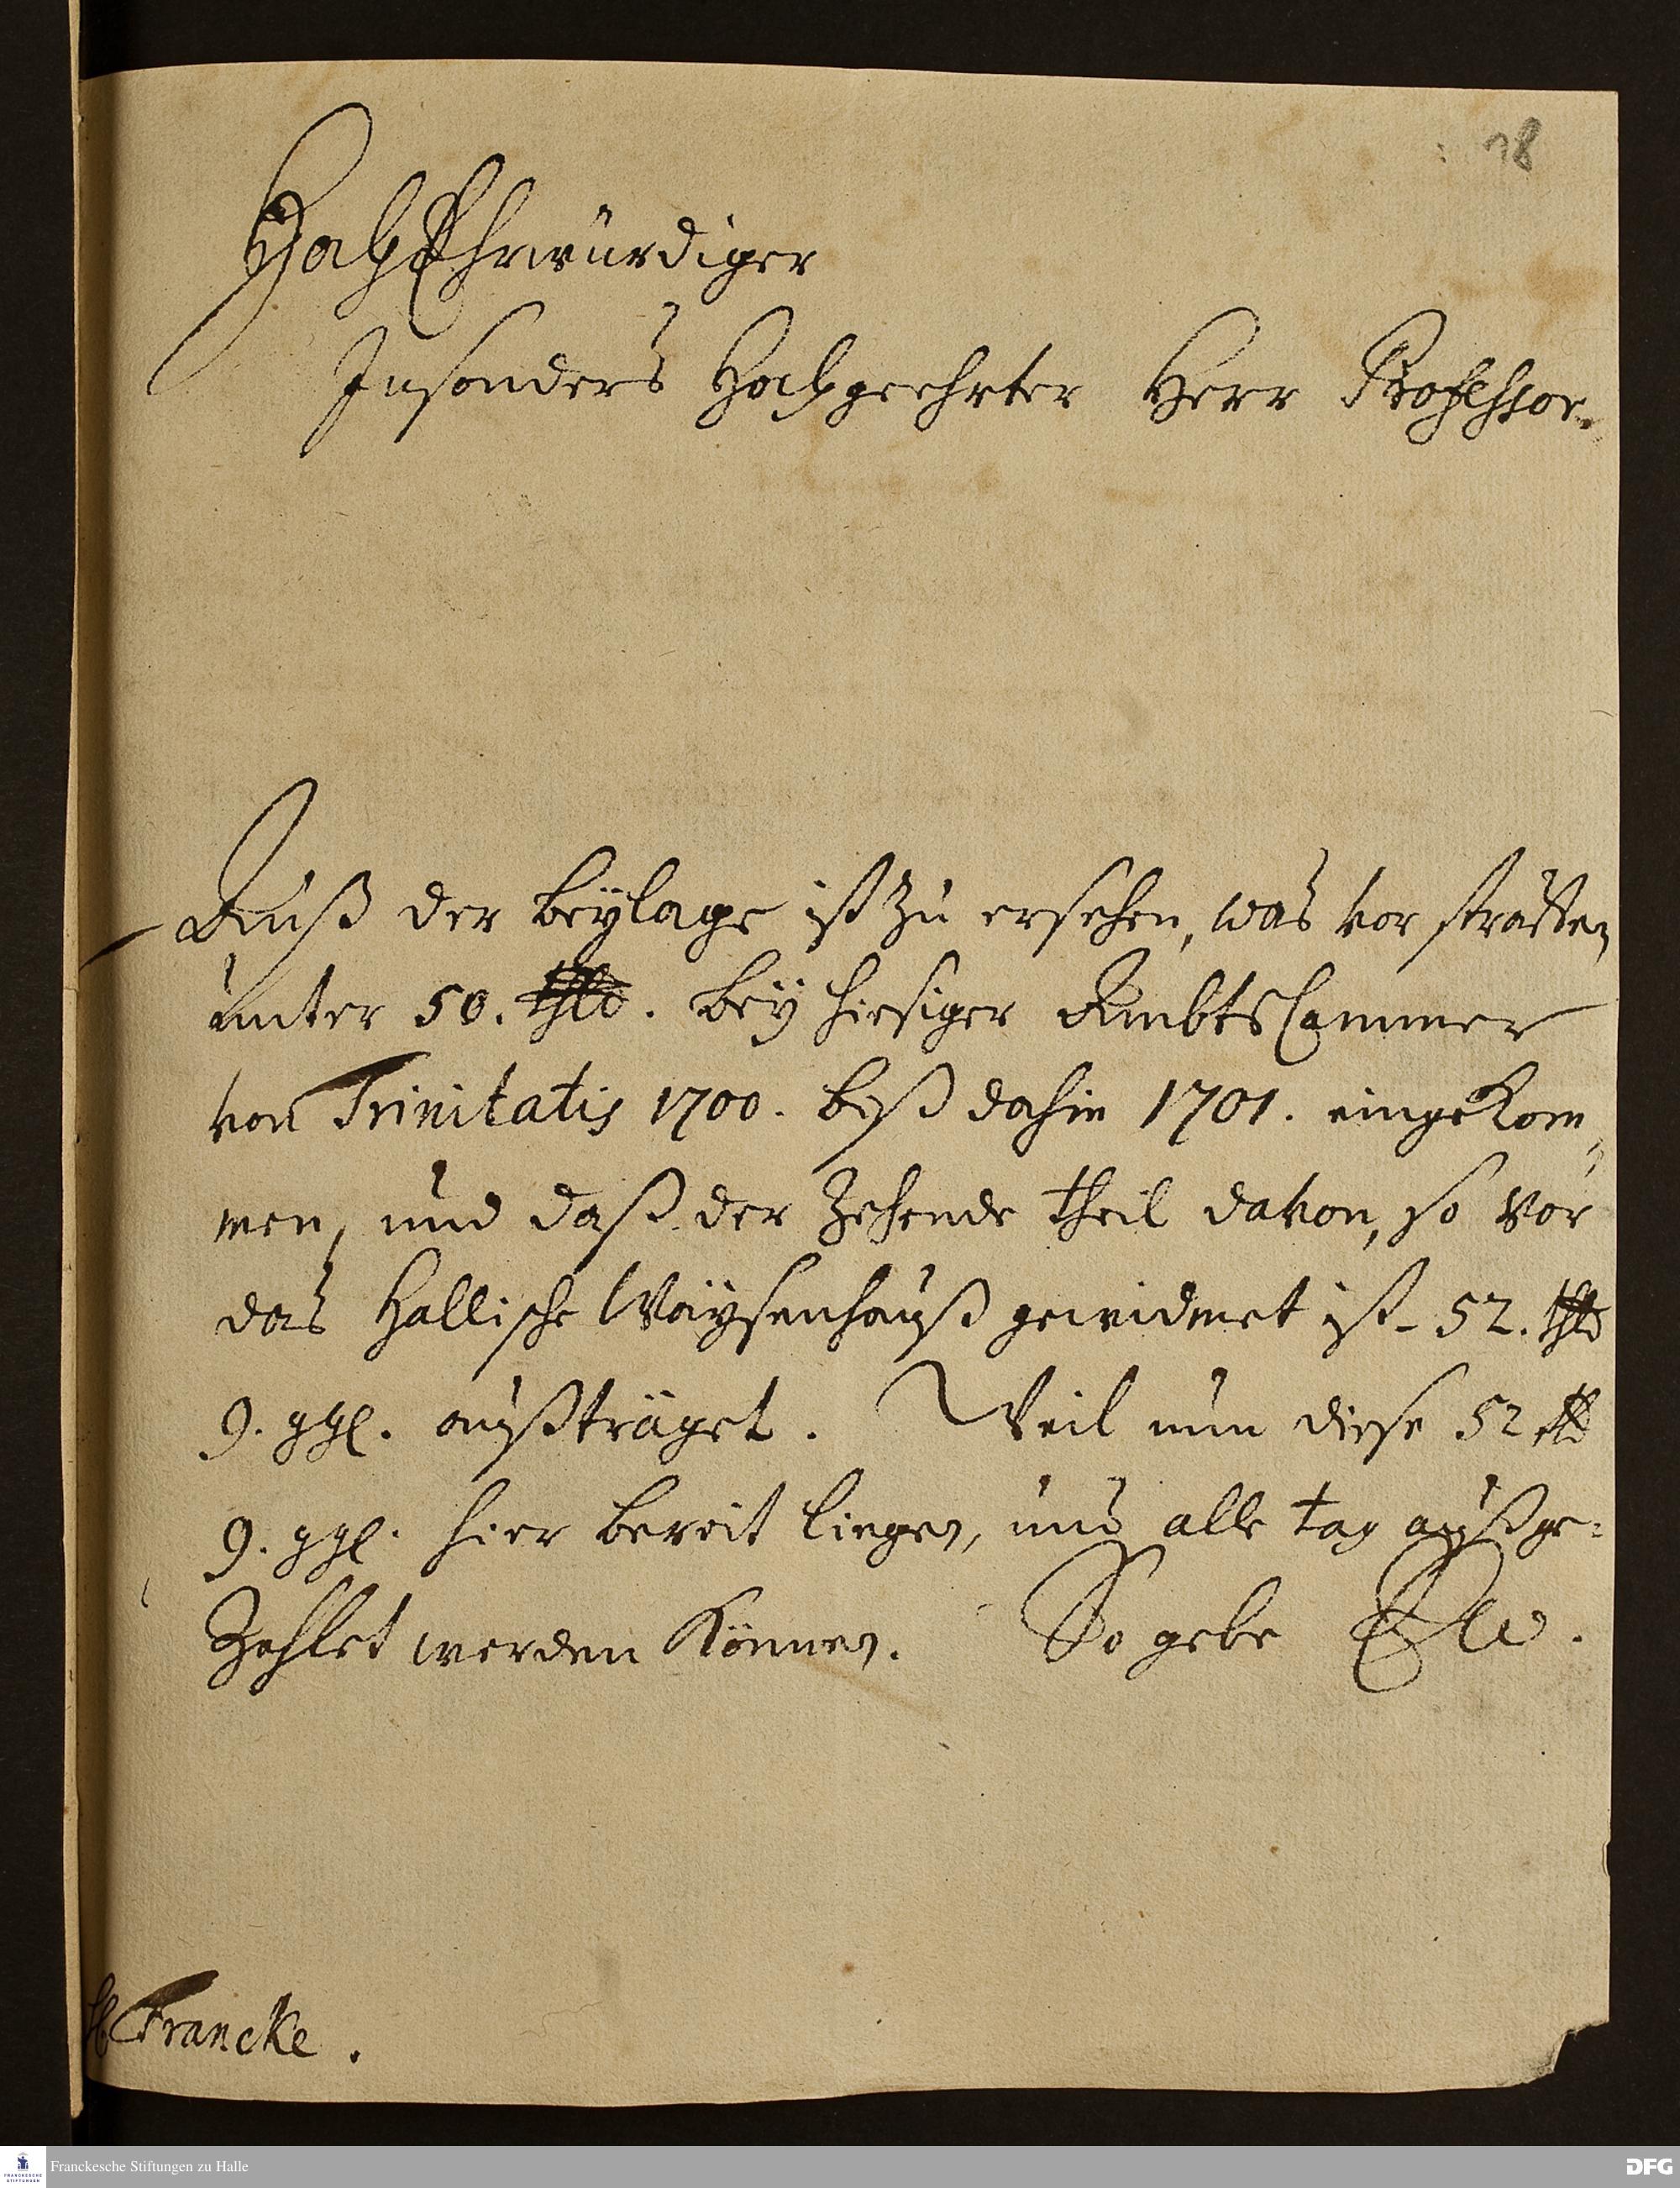 18
HochEhrwürdiger
Insonders Hochgeehrter Herr Professor.
Auß der beÿlage ist zu ersehen, was vor straffen
unter 50. thlr. beÿ hiesiger AmbtsCammer
von Trinitatis 1700. biß dahin 1701. eingekom¬
men, und daß der Zehende theil davon, so vor
das Hallische Waÿsenhauß gewidmet ist 52. thlr
9. ggl. außträget. Weil nun diese 52 thlr
9. ggl. hier bereit liegen, und alle tag außge¬
Zahlet werden können. So gebe Ew.
H. Francke.
Franckesche Stiftungen zu Halle
FRANCKESCHE
STIFTUNGEN
DFG